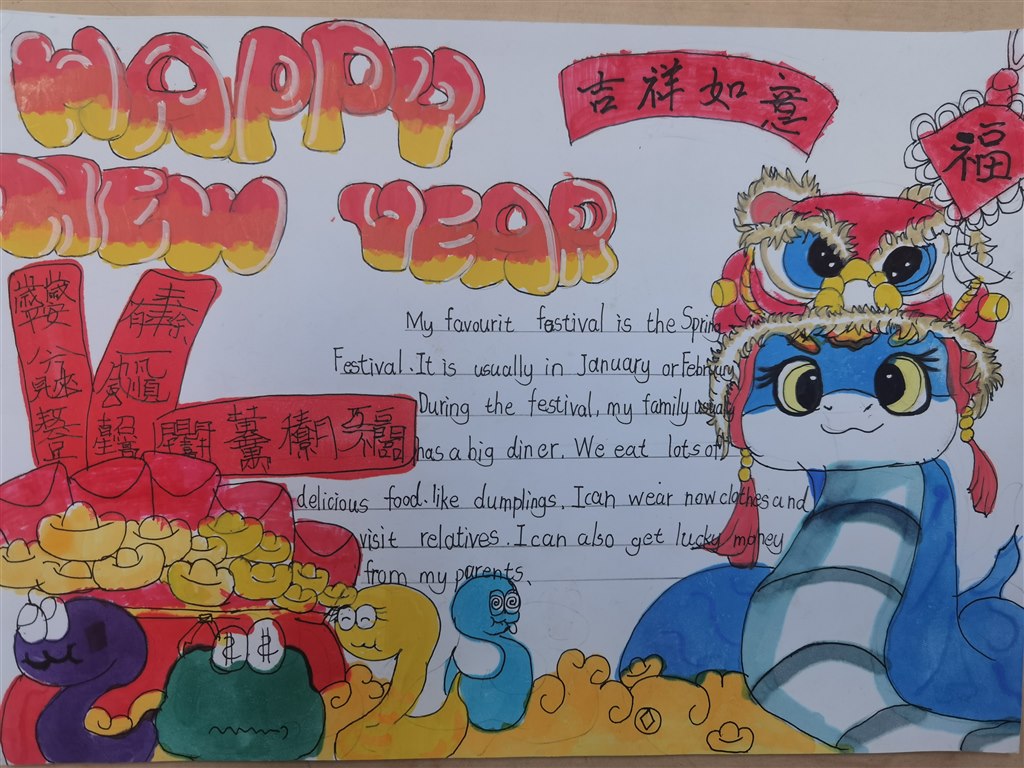 HAPPY
NEW YEAR
吉祥如意
福
My favourit festival is the Spring
Festival. It is usually in January or February
During the festival, my family usually
has a big diner. We eat lots of
delicious food. like dumplings. I can wear now clothes and
visit relatives. I can also get lucky money
from my parents.